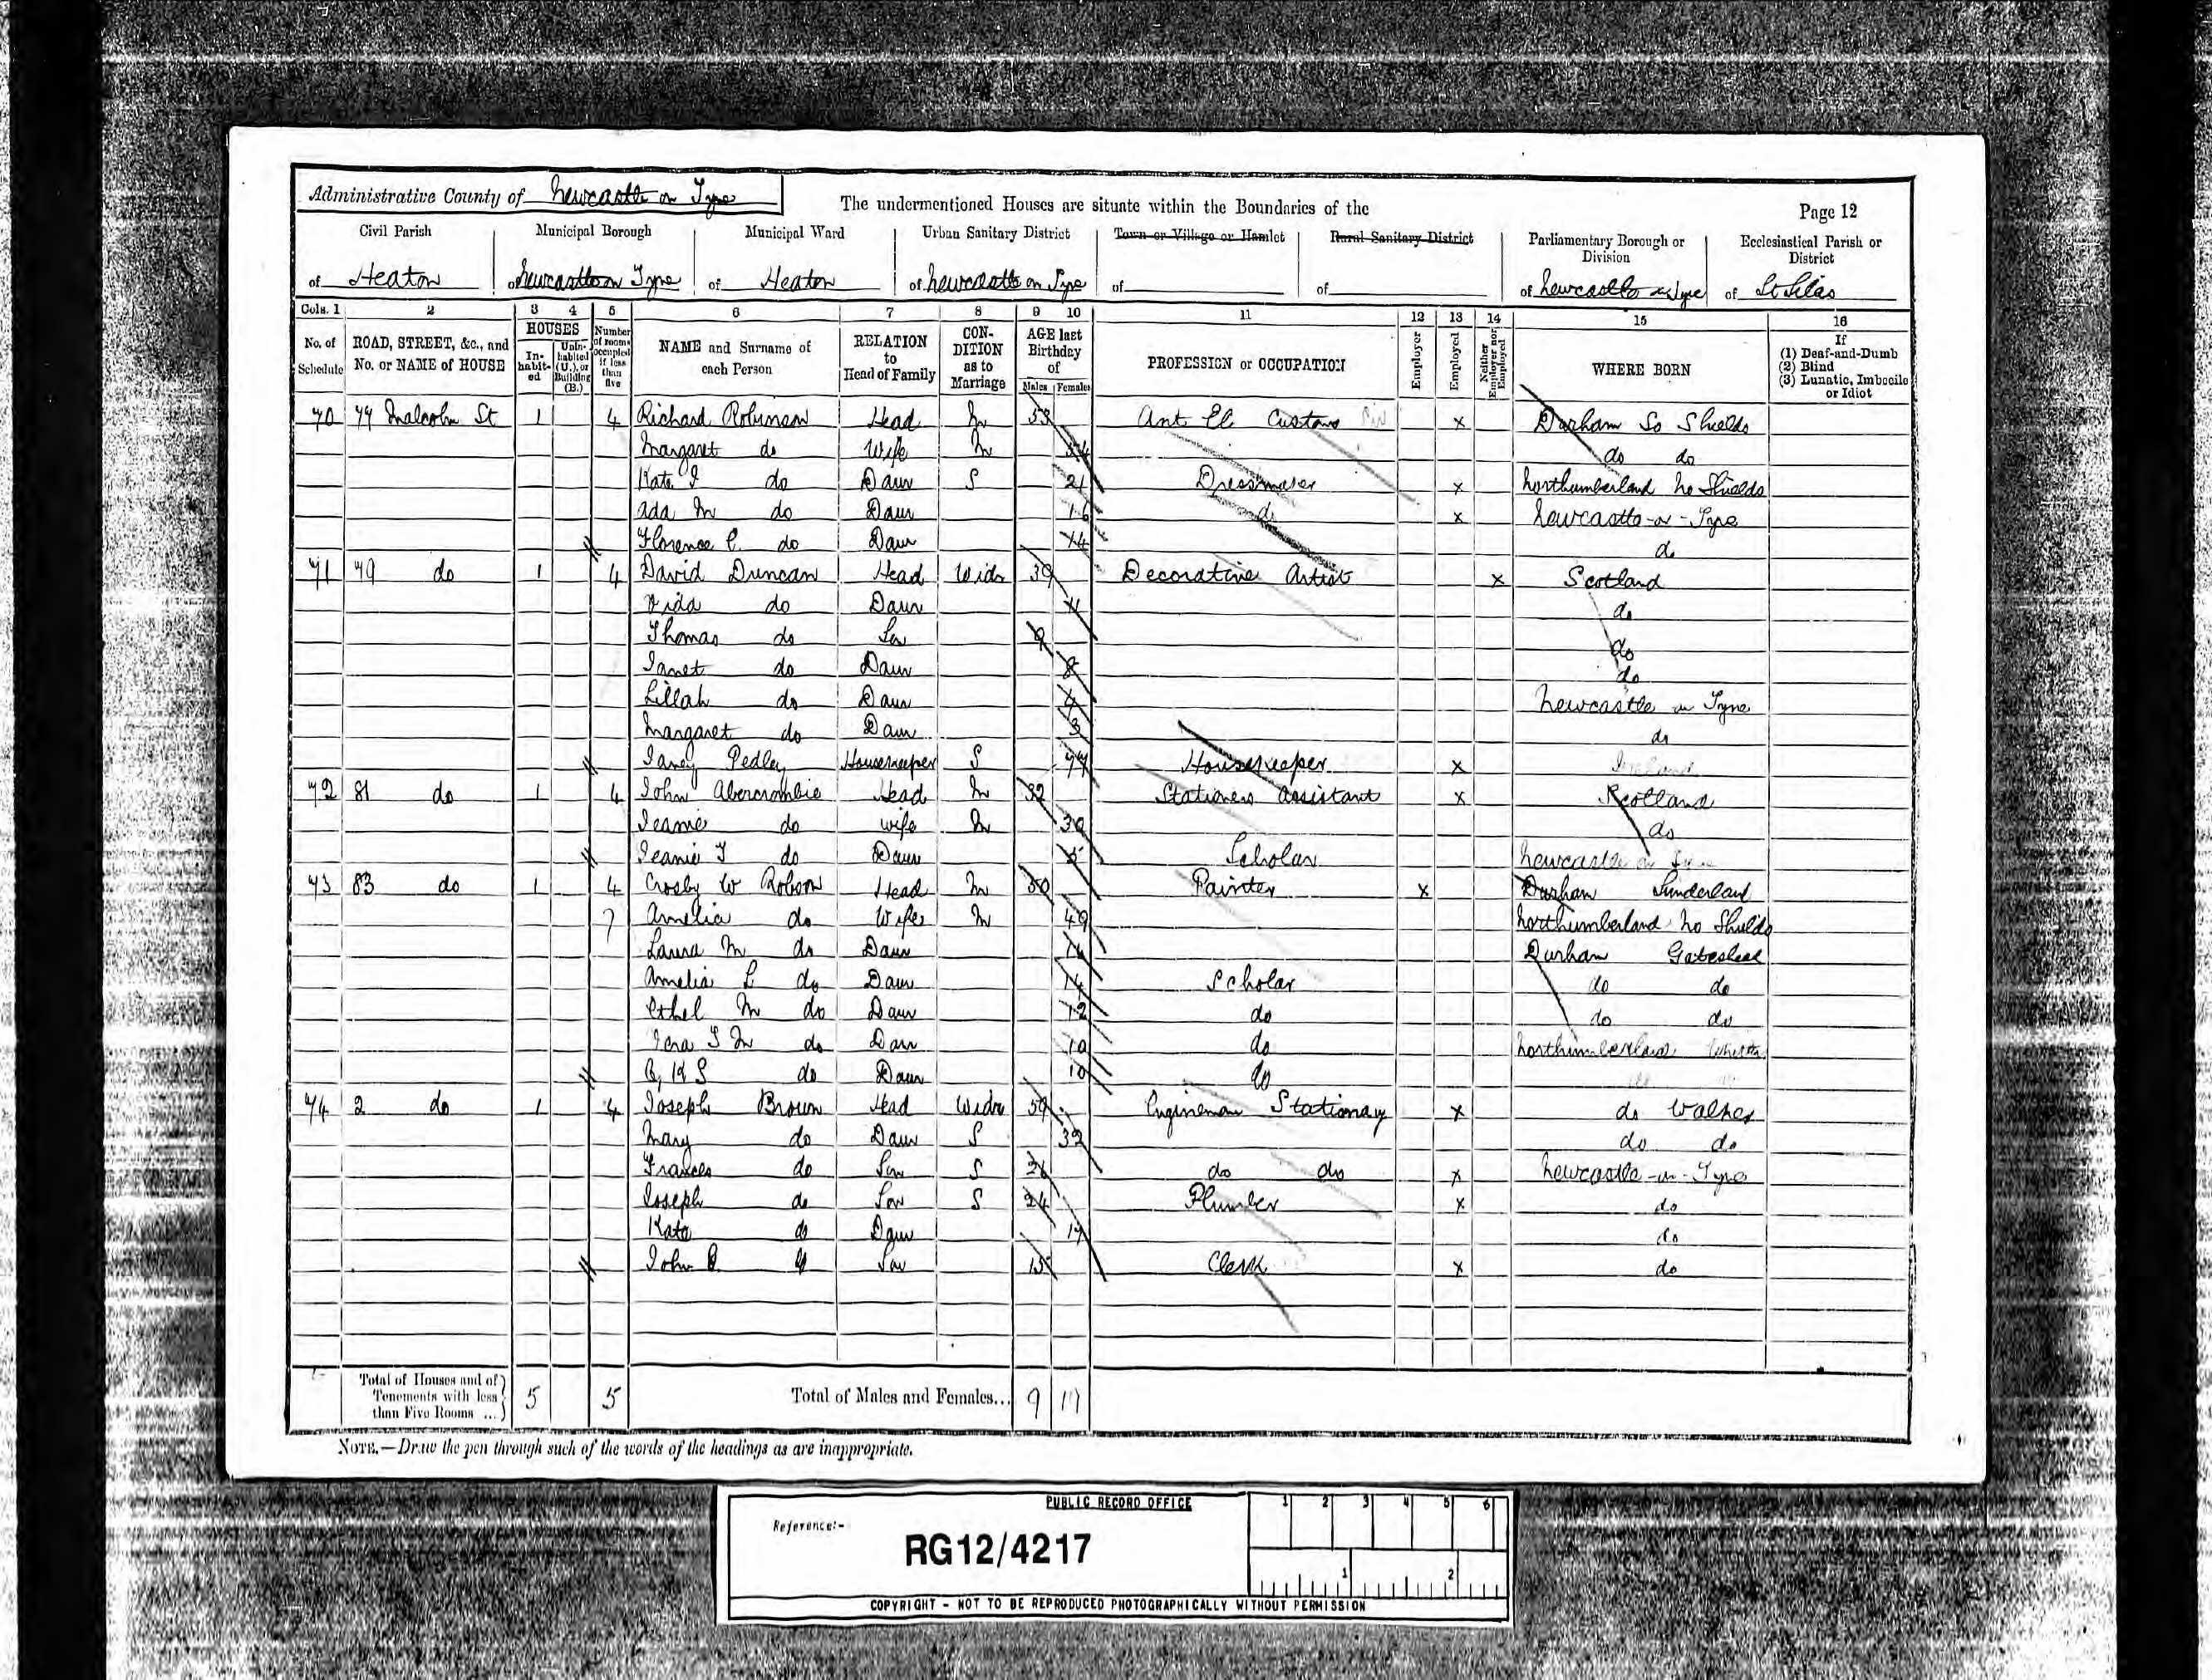 Administrative County of Newcastle on Tyne
The undermentioned Houses are situate within the Boundaries of the
Page 12
Civil Parish Municipal Borough Municipal Ward Urban Sanitary District Town or Village or Hamlet Rural Sanitary District Parliamentary Borough or Division Ecclesiastical Parish or District
of Heaton of Newcastle on Tyne of Heaton of Newcastle on Tyne of of of Newcastle on Tyne of St Silas
Cols. 1 2 3 4 5 6 7 8 9 10 11 12 13 14 15 16
No. of Schedule ROAD, STREET, &c., and No. or NAME of HOUSE HOUSES In-habit-ed Unin-habited (U.), or Building (B.) Number of rooms occupied if less than five NAME and Surname of each Person RELATION to Head of Family CON-DITION as to Marriage AGE last Birthday of Males Females PROFESSION or OCCUPATION Employer Employed Neither Employer nor Employed WHERE BORN If (1) Deaf-and-Dumb (2) Blind (3) Lunatic, Imbecile or Idiot
70 77 Malcolm St 1 4 Richard Robinson Head M 53 Customs x Durham So Shields
Margaret do Wife M 54 do do
Kate I do Daur S 21 Dressmaker x Northumberland No Shields
Ada M do Daur 16 do x Newcastle-on-Tyne
Florence C. do Daur 14 do
71 79 do 1 4 David Duncan Head Widr 39 Decorative Artist x Scotland
do Daur 11 do
Thomas do Son 9 do
Janet do Daur 8 do
Lillah do Daur 4 Newcastle on Tyne
Margaret do Daur 3 do
Pedley Housekeeper S Housekeeper x Ireland
72 81 do 1 4 John Abercrombie Head M 32 Stationers Assistant x Scotland
Jeanie do wife M 30 do
Jeanie T do Daur 5 Scholar Newcastle on Tyne
73 83 do 1 4 Crosby W Robson Head M 50 Painter x Durham Sunderland
7 Amelia do Wife M 49 Northumberland No Shields
Laura M do Daur Durham Gateshead
Amelia L do Daur 14 Scholar do do
Ethel M do Daur 12 do do do
do Daur 10 do Northumberland
do Daur 10 do
74 2 do 1 4 Joseph Brown Head Widr 59 Engineman Stationary x do Walker
Mary do Daur S 32 do do
Frances do Son S 26 do do x Newcastle-on-Tyne
Joseph do Son S 24 Plumber x do
Kate do Daur 17 do
John do Son 15 Clerk x do
Total of Houses and of Tenements with less than Five Rooms ... 5 5 Total of Males and Females... 9 19
NOTE.—Draw the pen through such of the words of the headings as are inappropriate.
PUBLIC RECORD OFFICE
Reference:-
RG12/4217
1 2 3 4 5 6
1 2
COPYRIGHT - NOT TO BE REPRODUCED PHOTOGRAPHICALLY WITHOUT PERMISSION